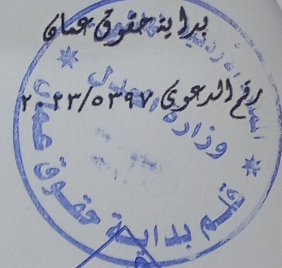 بداية حقوق عمان
رقم الدعوى ٢٠٢٣/٥٣٩٧
وزارة العدل
قلم بداية حقوق عمان